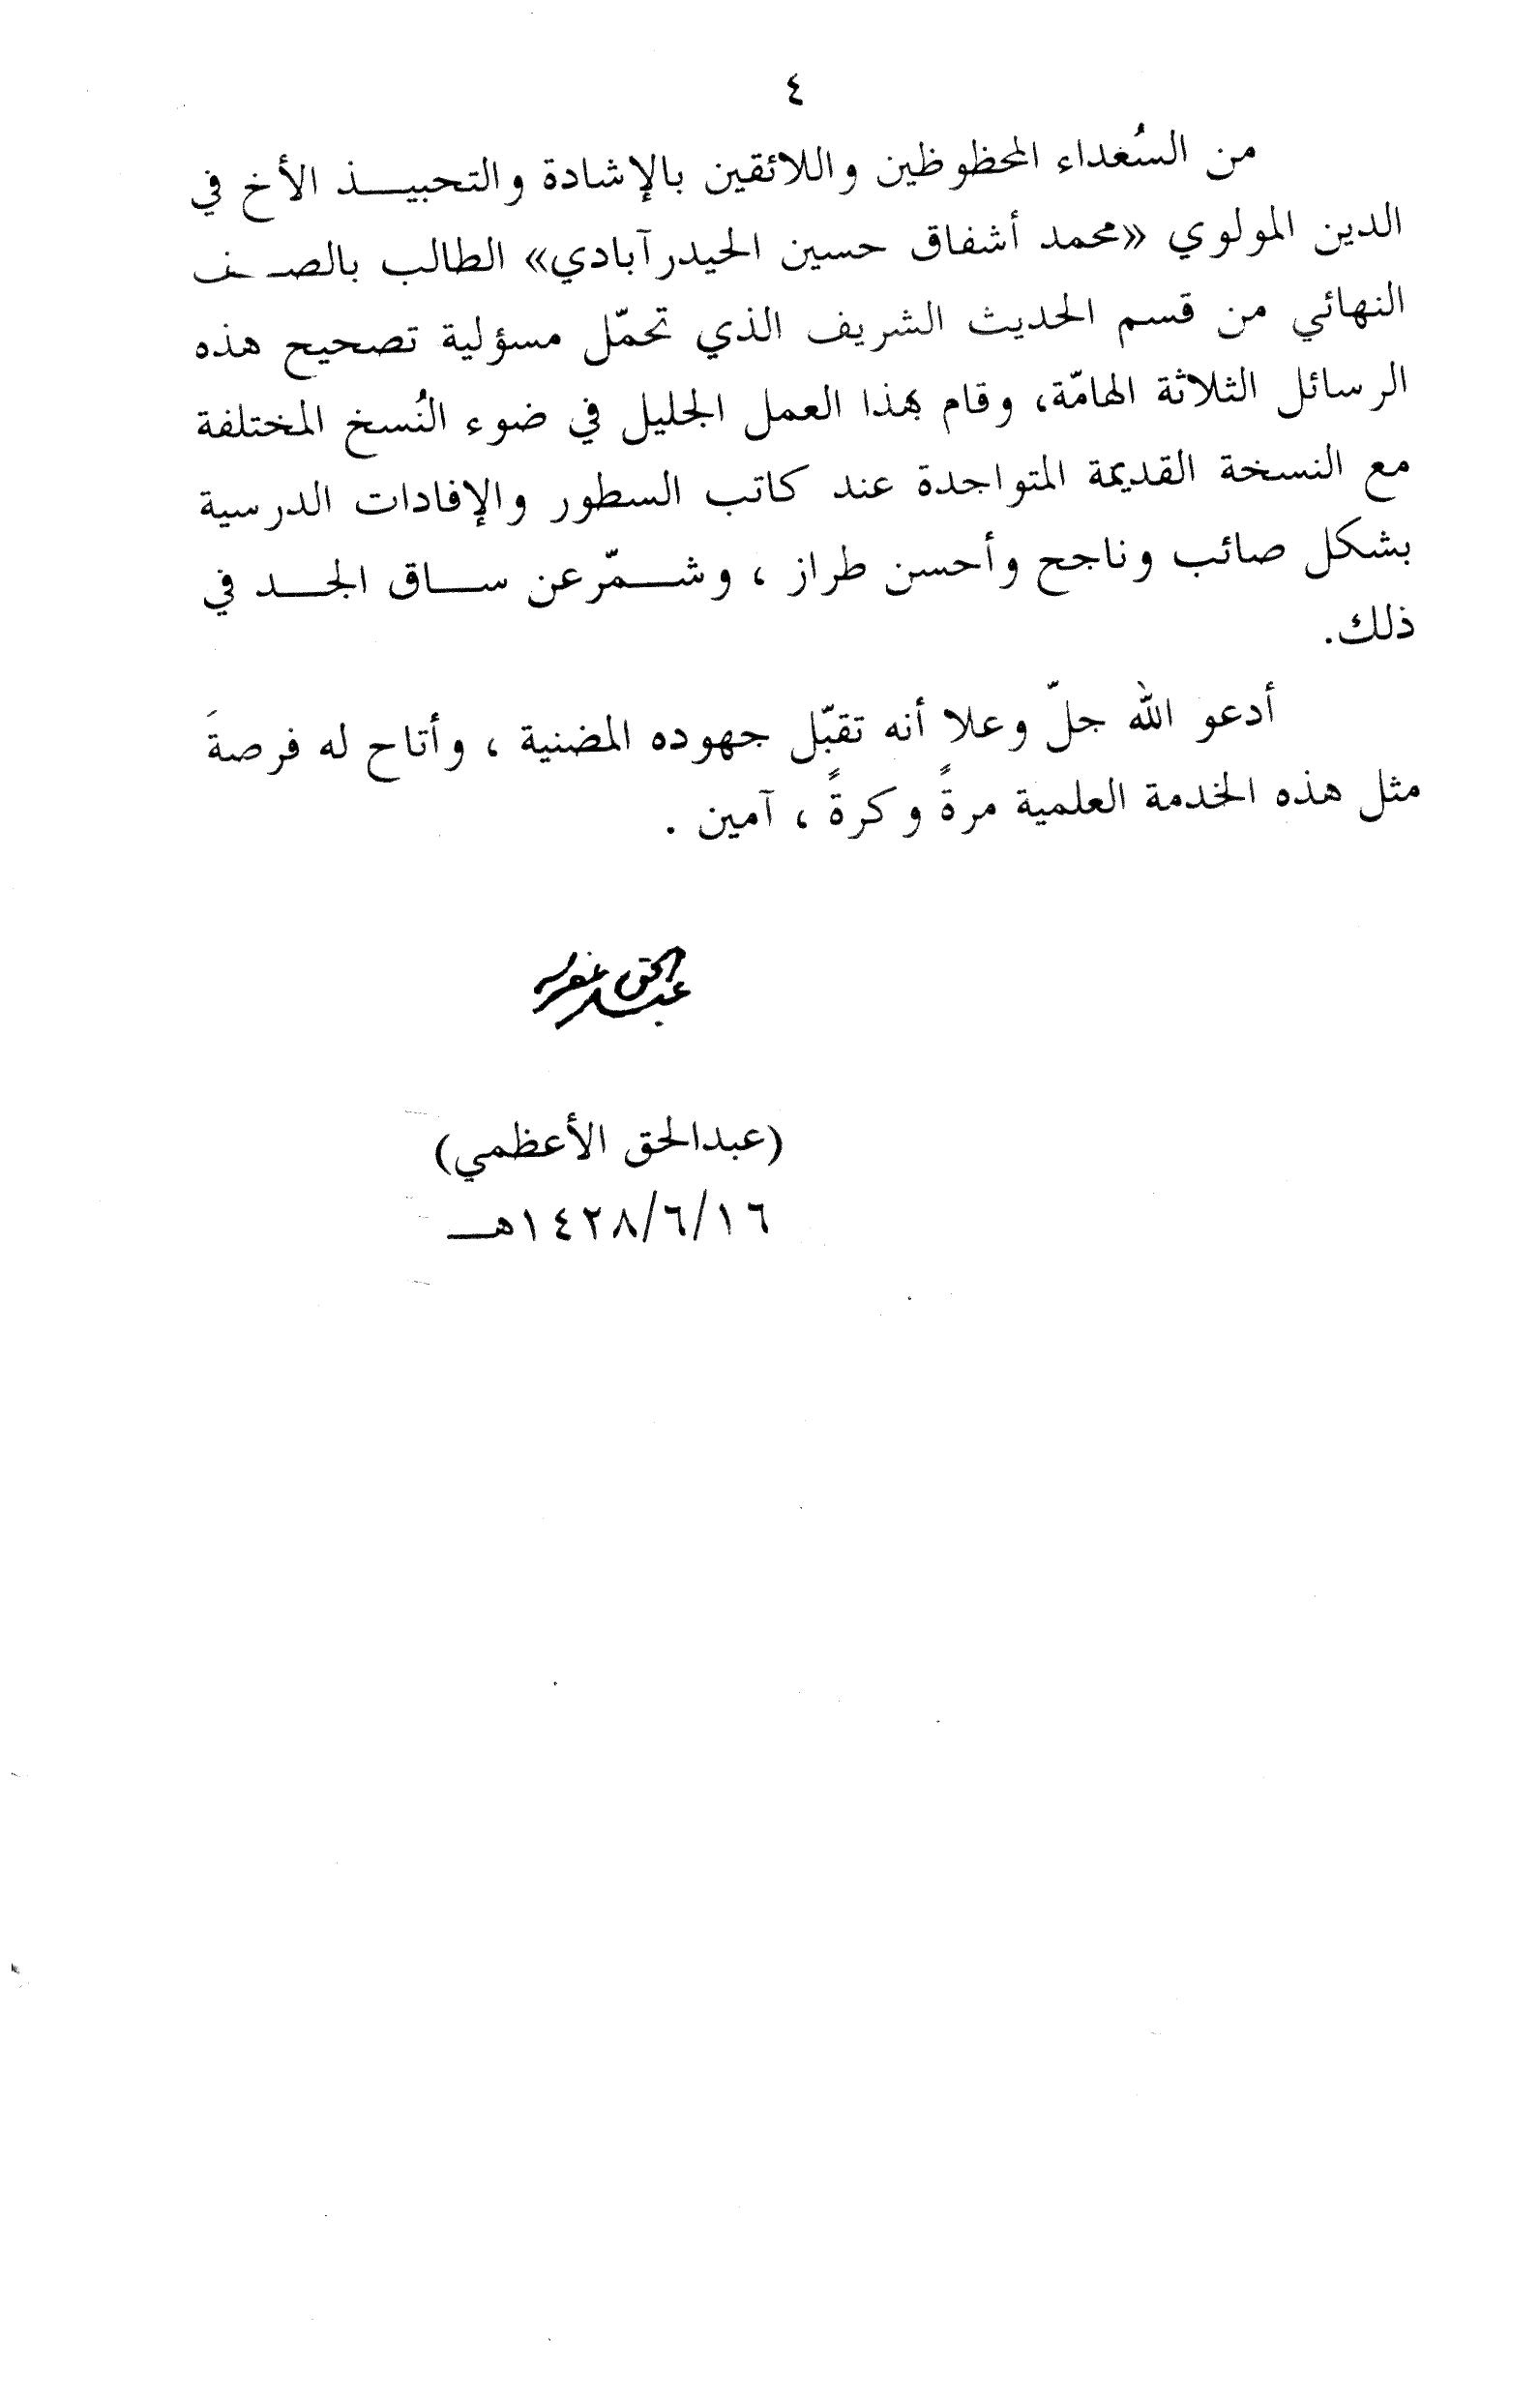 ٤
من السُغداء المحظوظين واللائقين بالإشادة والتحبيـــذ الأخ في
الدين المولوي «محمد أشفاق حسين الحيدرآبادي» الطالب بالصـف
النهائي من قسم الحديث الشريف الذي تحمّل مسؤلية تصحيح هذه
الرسائل الثلاثة الهامّة، وقام بهذا العمل الجليل في ضوء النُسخ المختلفة
مع النسخة القديمة المتواجدة عند كاتب السطور والإفادات الدرسية
بشكل صائب وناجح وأحسن طراز ، وشـــمّرعن ســـاق الجـــد في
ذلك.
أدعو الله جلّ وعلا أنه تقبّل جهوده المضنية ، وأتاح له فرصةَ
مثل هذه الخدمة العلمية مرةً وكرةً ، آمين .
عبد الحق غفرله
(عبدالحق الأعظمي)
١٤٢٨/٦/١٦هـــ